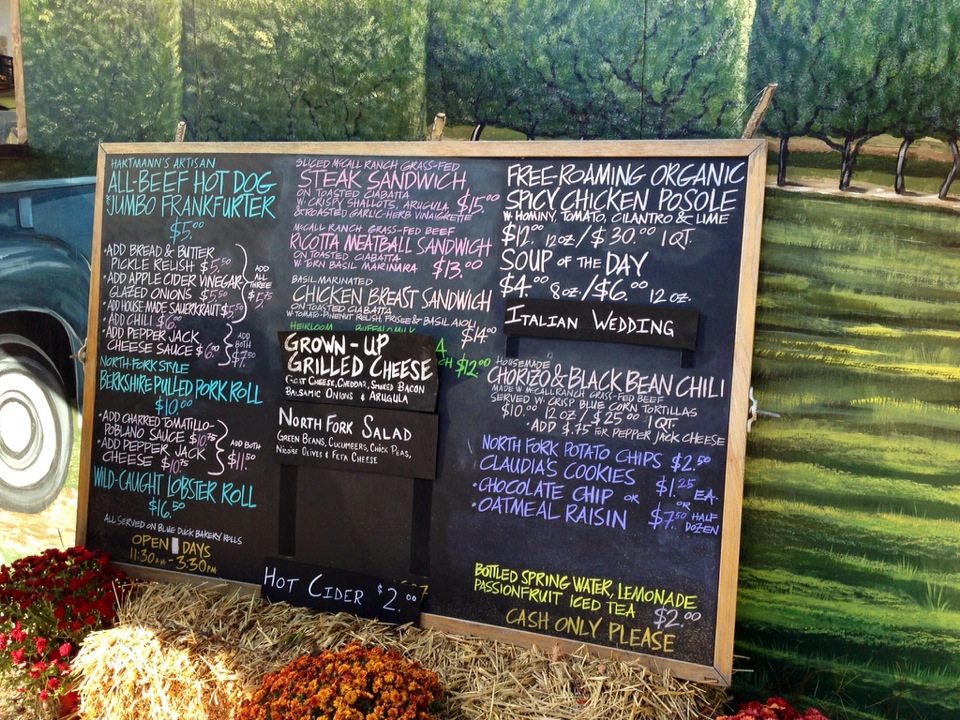 HARTMANN'S ARTISAN
ALL-BEEF HOT DOG
JUMBO FRANKFURTER
$5.00
•ADD BREAD & BUTTER
PICKLE RELISH $5.50
•ADD APPLE CIDER VINEGAR
GLAZED ONIONS $5.50
•ADD HOUSE MADE SAUERKRAUT $5.50
ADD ALL THREE $5.75
•ADD CHILI $6.00
•ADD PEPPER JACK
CHEESE SAUCE $6.00
ADD BOTH
NORTH FORK STYLE
BERKSHIRE PULLED PORK ROLL
$10.00
•ADD CHARRED TOMATILLO-
POBLANO SAUCE $10.75
•ADD PEPPER JACK
CHEESE $10.75
ADD BOTH $11.50
WILD-CAUGHT LOBSTER ROLL
$16.50
ALL SERVED ON BLUE DUCK BAKERY ROLLS
OPEN DAYS
11:30AM - 3:30PM
SLICED McCALL RANCH GRASS-FED
STEAK SANDWICH
ON TOASTED CIABATTA
W. CRISPY SHALLOTS, ARUGULA
& ROASTED GARLIC-HERB VINAIGRETTE
$15.00
McCALL RANCH GRASS-FED BEEF
RICOTTA MEATBALL SANDWICH
ON TOASTED CIABATTA
W. TORN BASIL MARINARA $13.00
BASIL MARINATED
CHICKEN BREAST SANDWICH
ON TOASTED CIABATTA
W. TOMATO-PIMENET RELISH, FRISEE & BASIL AIOLI
$14.00
HEIRLOOM BUFFALO MILK
CH $12.00
GROWN-UP
GRILLED CHEESE
GOAT CHEESE, CHEDDAR, SMOKED BACON
BALSAMIC ONIONS & ARUGULA
NORTH FORK SALAD
GREEN BEANS, CUCUMBERS, CHICK PEAS,
NICOISE OLIVES & FETA CHEESE
HOT CIDER $2.00
FREE-ROAMING ORGANIC
SPICY CHICKEN POSOLE
W. HOMINY, TOMATO, CILANTRO & LIME
$12. 12OZ / $30.00 1QT.
SOUP OF THE DAY
$4.00 8OZ / $6.00 12OZ.
ITALIAN WEDDING
HOUSEMADE
CHORIZO & BLACK BEAN CHILI
MADE W. McCALL RANCH GRASS-FED BEEF
SERVED W. CRISP BLUE CORN TORTILLAS
$10.00 12OZ / $25.00 1QT.
•ADD $.75 FOR PEPPER JACK CHEESE
NORTH FORK POTATO CHIPS $2.50
CLAUDIA'S COOKIES
•CHOCOLATE CHIP OR
•OATMEAL RAISIN
$1.25 EA.
OR
$7.50 HALF DOZEN
BOTTLED SPRING WATER, LEMONADE
PASSIONFRUIT ICED TEA
$2.00
CASH ONLY PLEASE